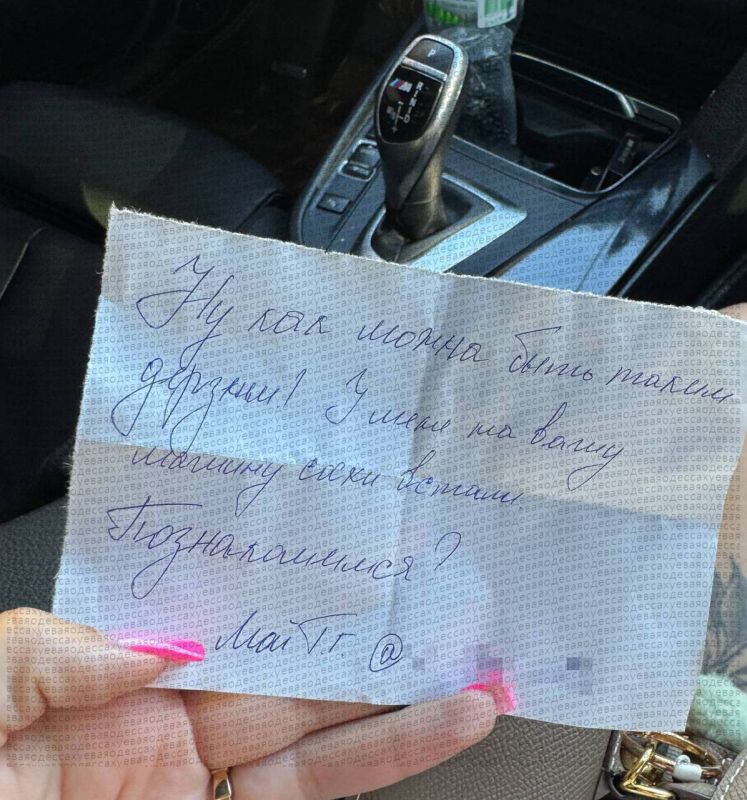 P
R
N
D
Ну как можна быть таким
дерзким! У меня на вашу
машину соски встали
Познакомимся?
Мой Тг @